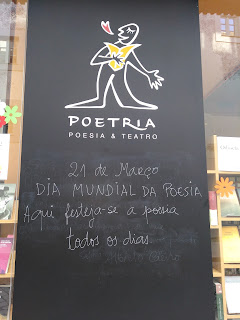 POETRIA
POESIA & TEATRO
21 de Março
DIA MUNDIAL DA POESIA
Aqui festeja-se a poesia
todos os dias.